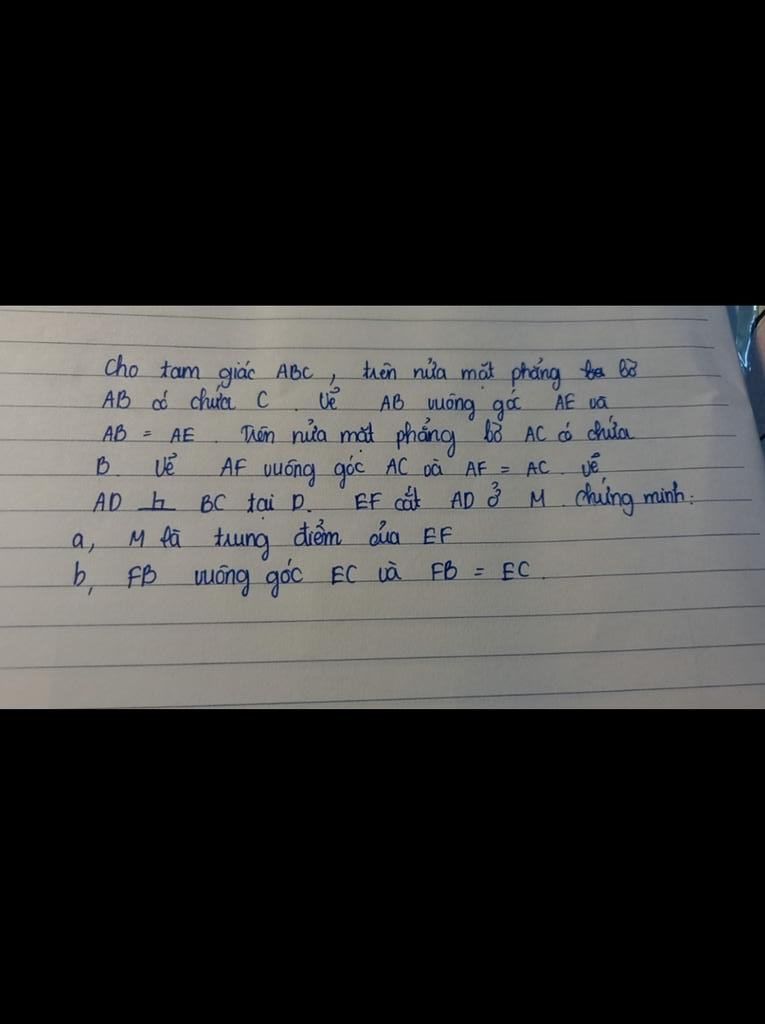 Cho tam giác ABC, trên nửa mặt phẳng bờ
AB có chứa C. Vẽ AB vuông góc AE và
AB = AE. Trên nửa mặt phẳng bờ AC có chứa
B. Vẽ AF vuông góc AC và AF = AC. Vẽ
AD ⊥ BC tại D. EF cắt AD ở M. chứng minh:
a, M là trung điểm của EF
b, FB vuông góc EC và FB = EC.